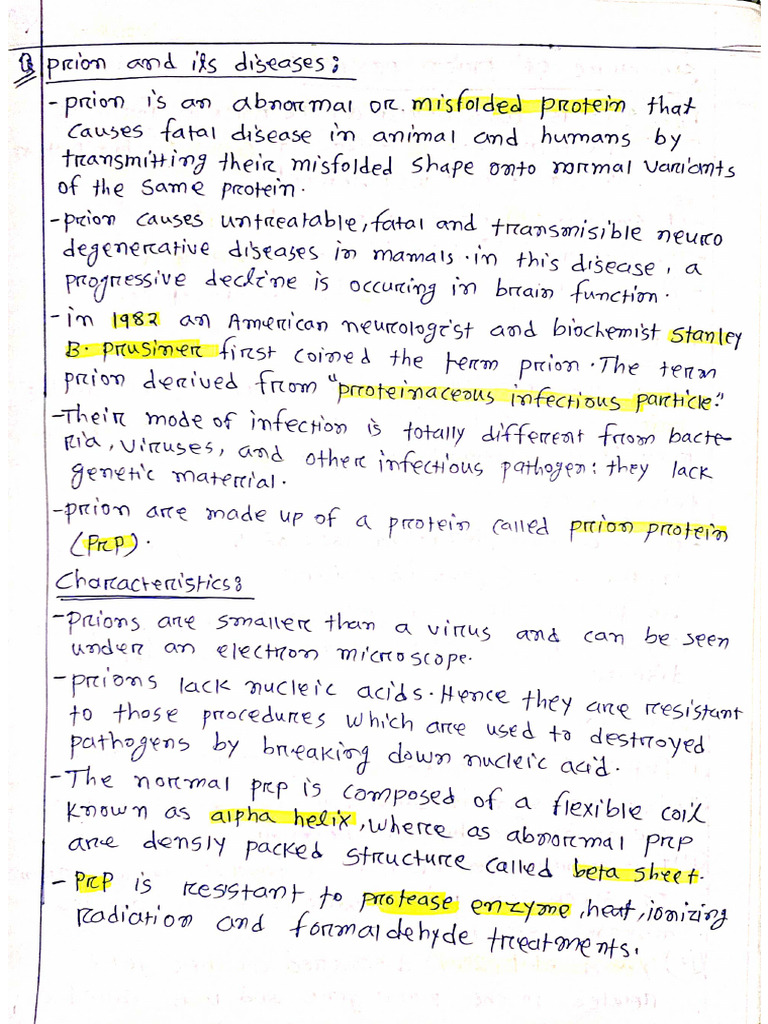 Q prion and its diseases:
- prion is an abnormal or misfolded protein that
causes fatal disease in animal and humans by
transmitting their misfolded shape onto normal variants
of the same protein.
- prion causes untreatable, fatal and transmisible neuro
degenerative diseases in mamals. in this disease, a
progressive decline is occuring in brain function.
- in 1982 an American neurologist and biochemist Stanley
B. Prusiner first coined the term prion. The term
prion derived from "proteinaceous infectious particle."
- Their mode of infection is totally different from bacte-
ria, viruses, and other infectious pathogen: they lack
genetic material.
- prion are made up of a protein called prion protein
(PrP).
Characteristics:
- Prions are smaller than a virus and can be seen
under an electron microscope.
- prions lack nucleic acids. Hence they are resistant
to those procedures which are used to destroyed
pathogens by breaking down nucleic acid.
- The normal prp is composed of a flexible coil
known as alpha helix, where as abnormal prp
are densly packed structure called beta sheet.
- PrP is resstant to protease enzyme, heat, ionizing
radiation and formaldehyde treatments.